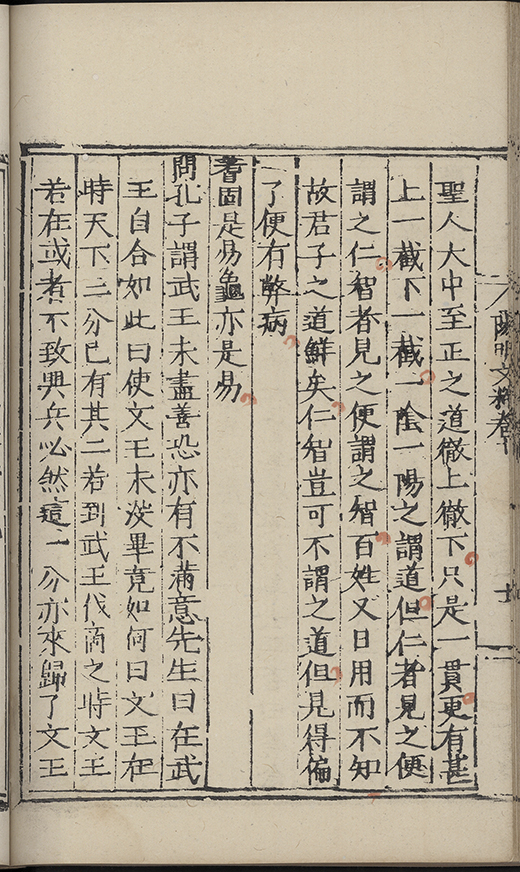 陽明文粹卷
十
聖人大中至正之道徹上徹下只是一貫更有甚
上一截下一截一陰一陽之謂道但仁者見之便
謂之仁智者見之便謂之智百姓又日用而不知
故君子之道鮮矣仁智豈可不謂之道但見得偏
了便有弊病
蓍固是易龜亦是易
問孔子謂武王未盡善恐亦有不滿意先生曰在武
王自合如此曰使文王未沒畢竟如何曰文王在
時天下三分已有其二若到武王伐商之時文王
若在或者不致興兵必然這一分亦來歸了文王